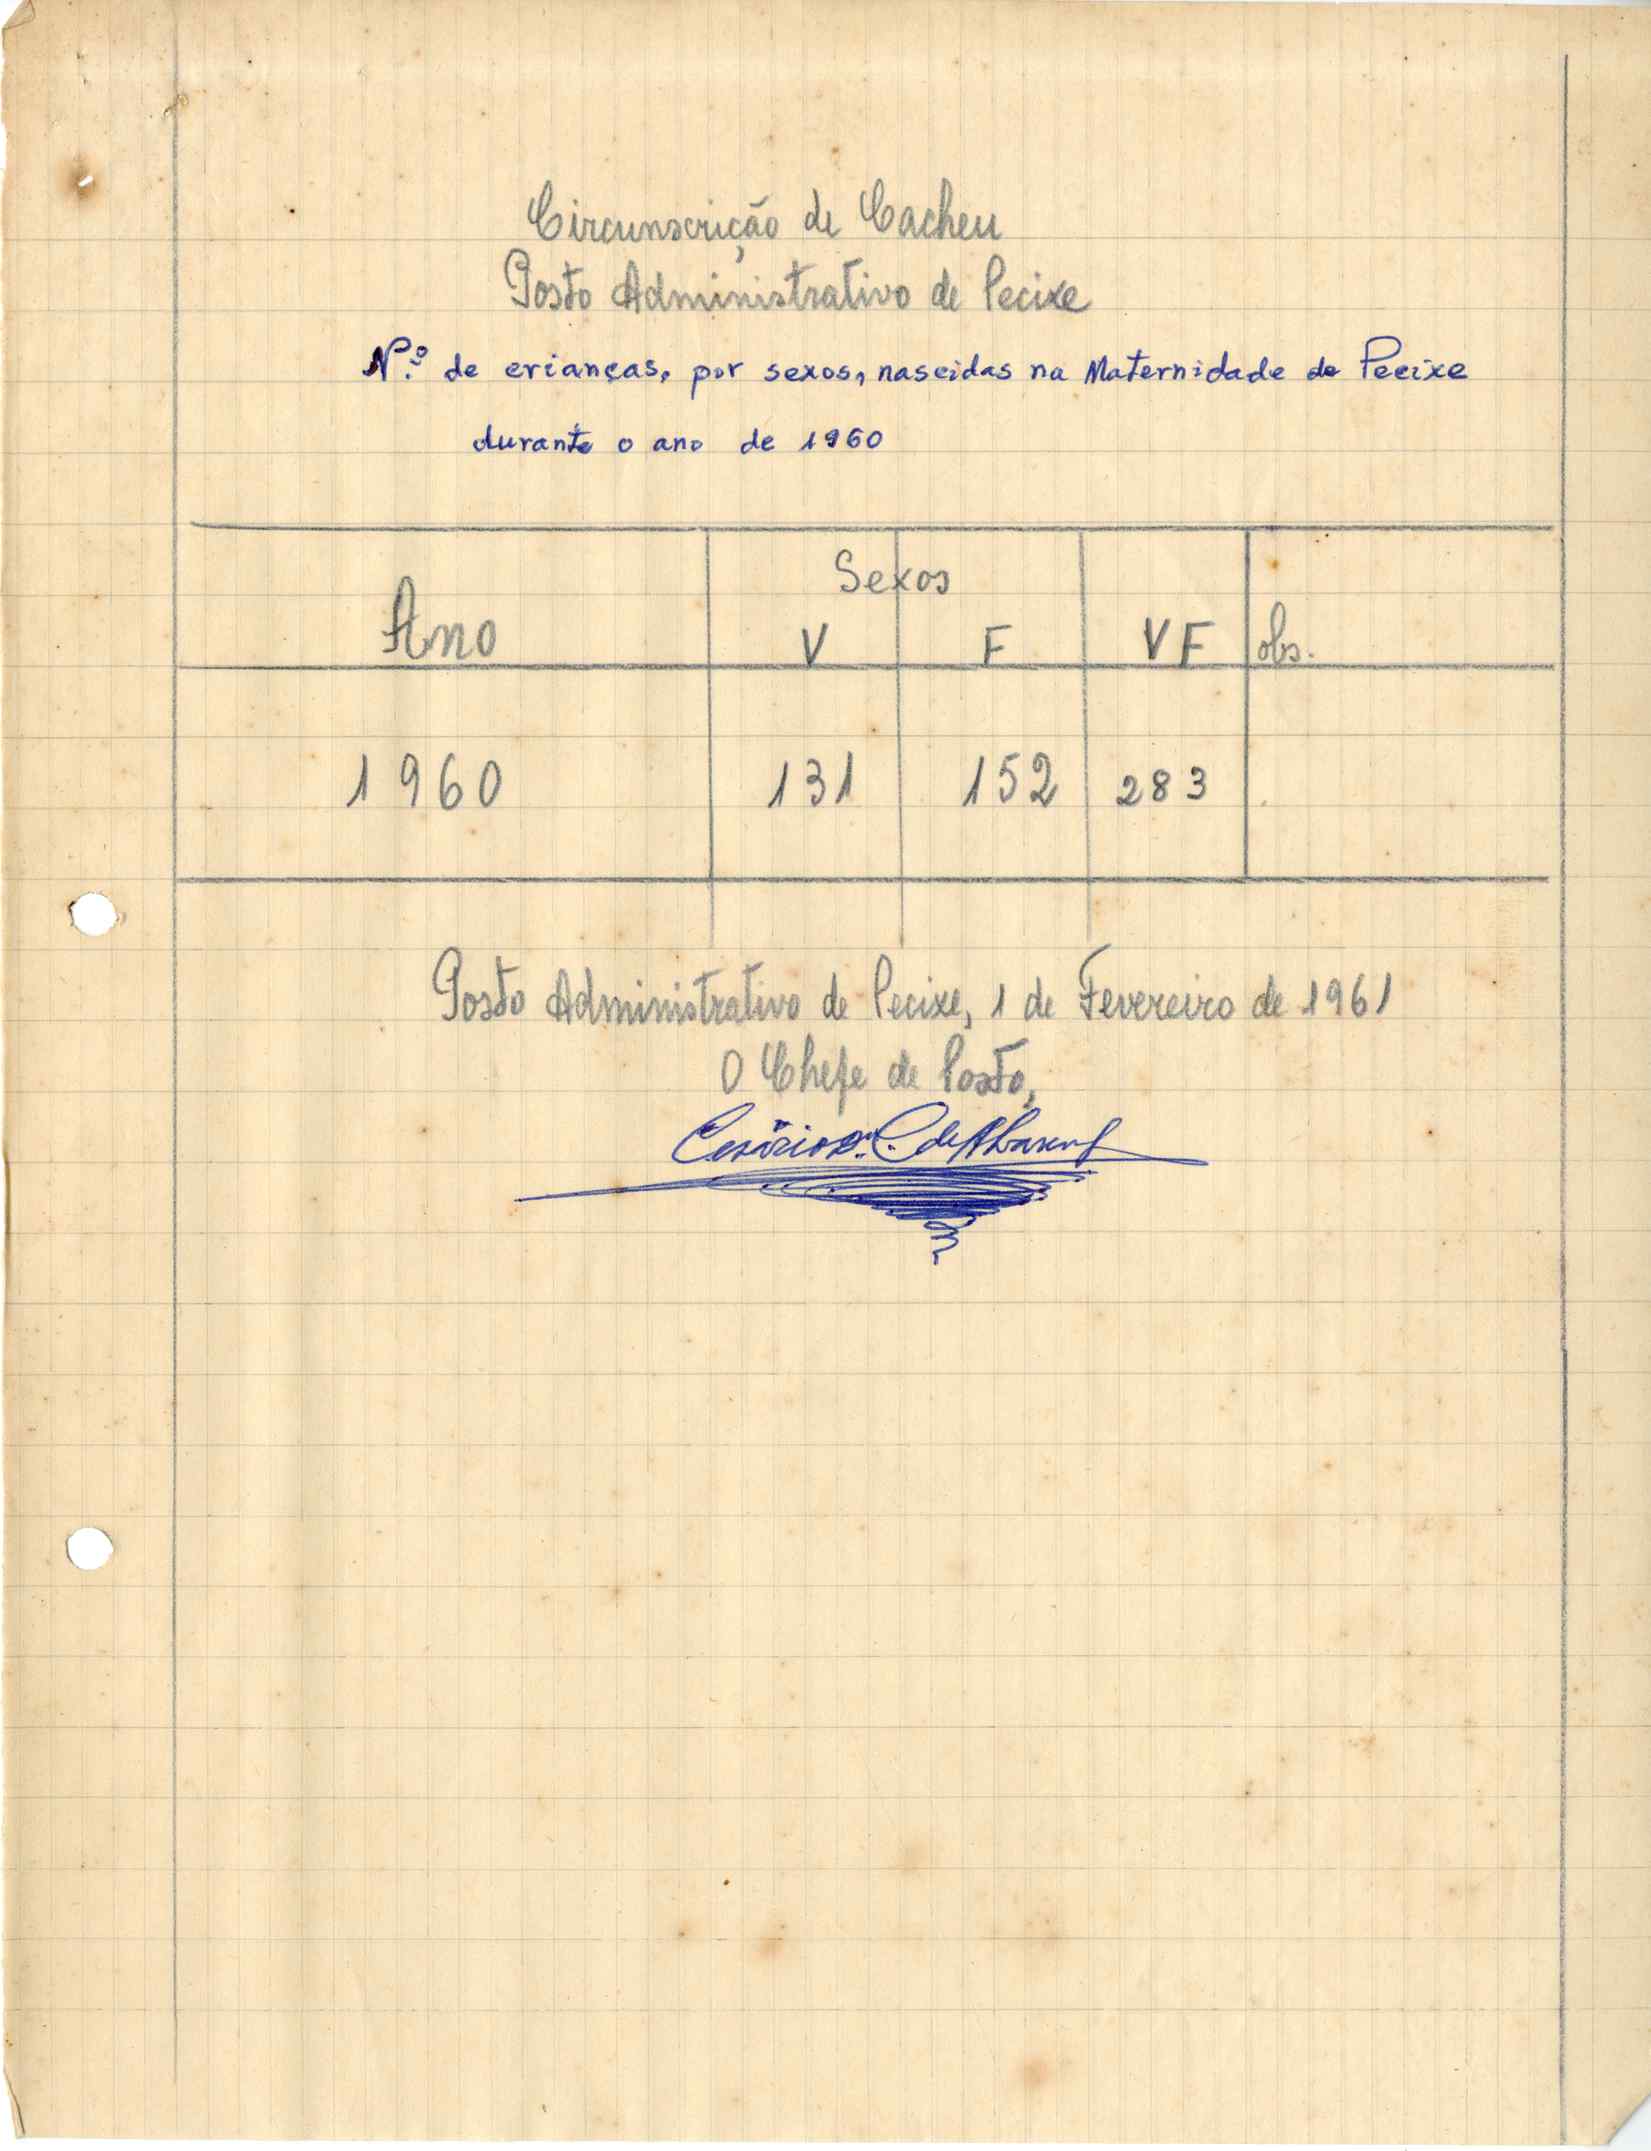 Circunscrição de Cacheu
Posto Administrativo de Pecixe
N.º de crianças, por sexos, nascidas na Maternidade de Pecixe
durante o ano de 1960
Sexos
Ano V F VF obs.
1960 131 152 283
Posto Administrativo de Pecixe, 1 de Fevereiro de 1961
O Chefe de Posto,